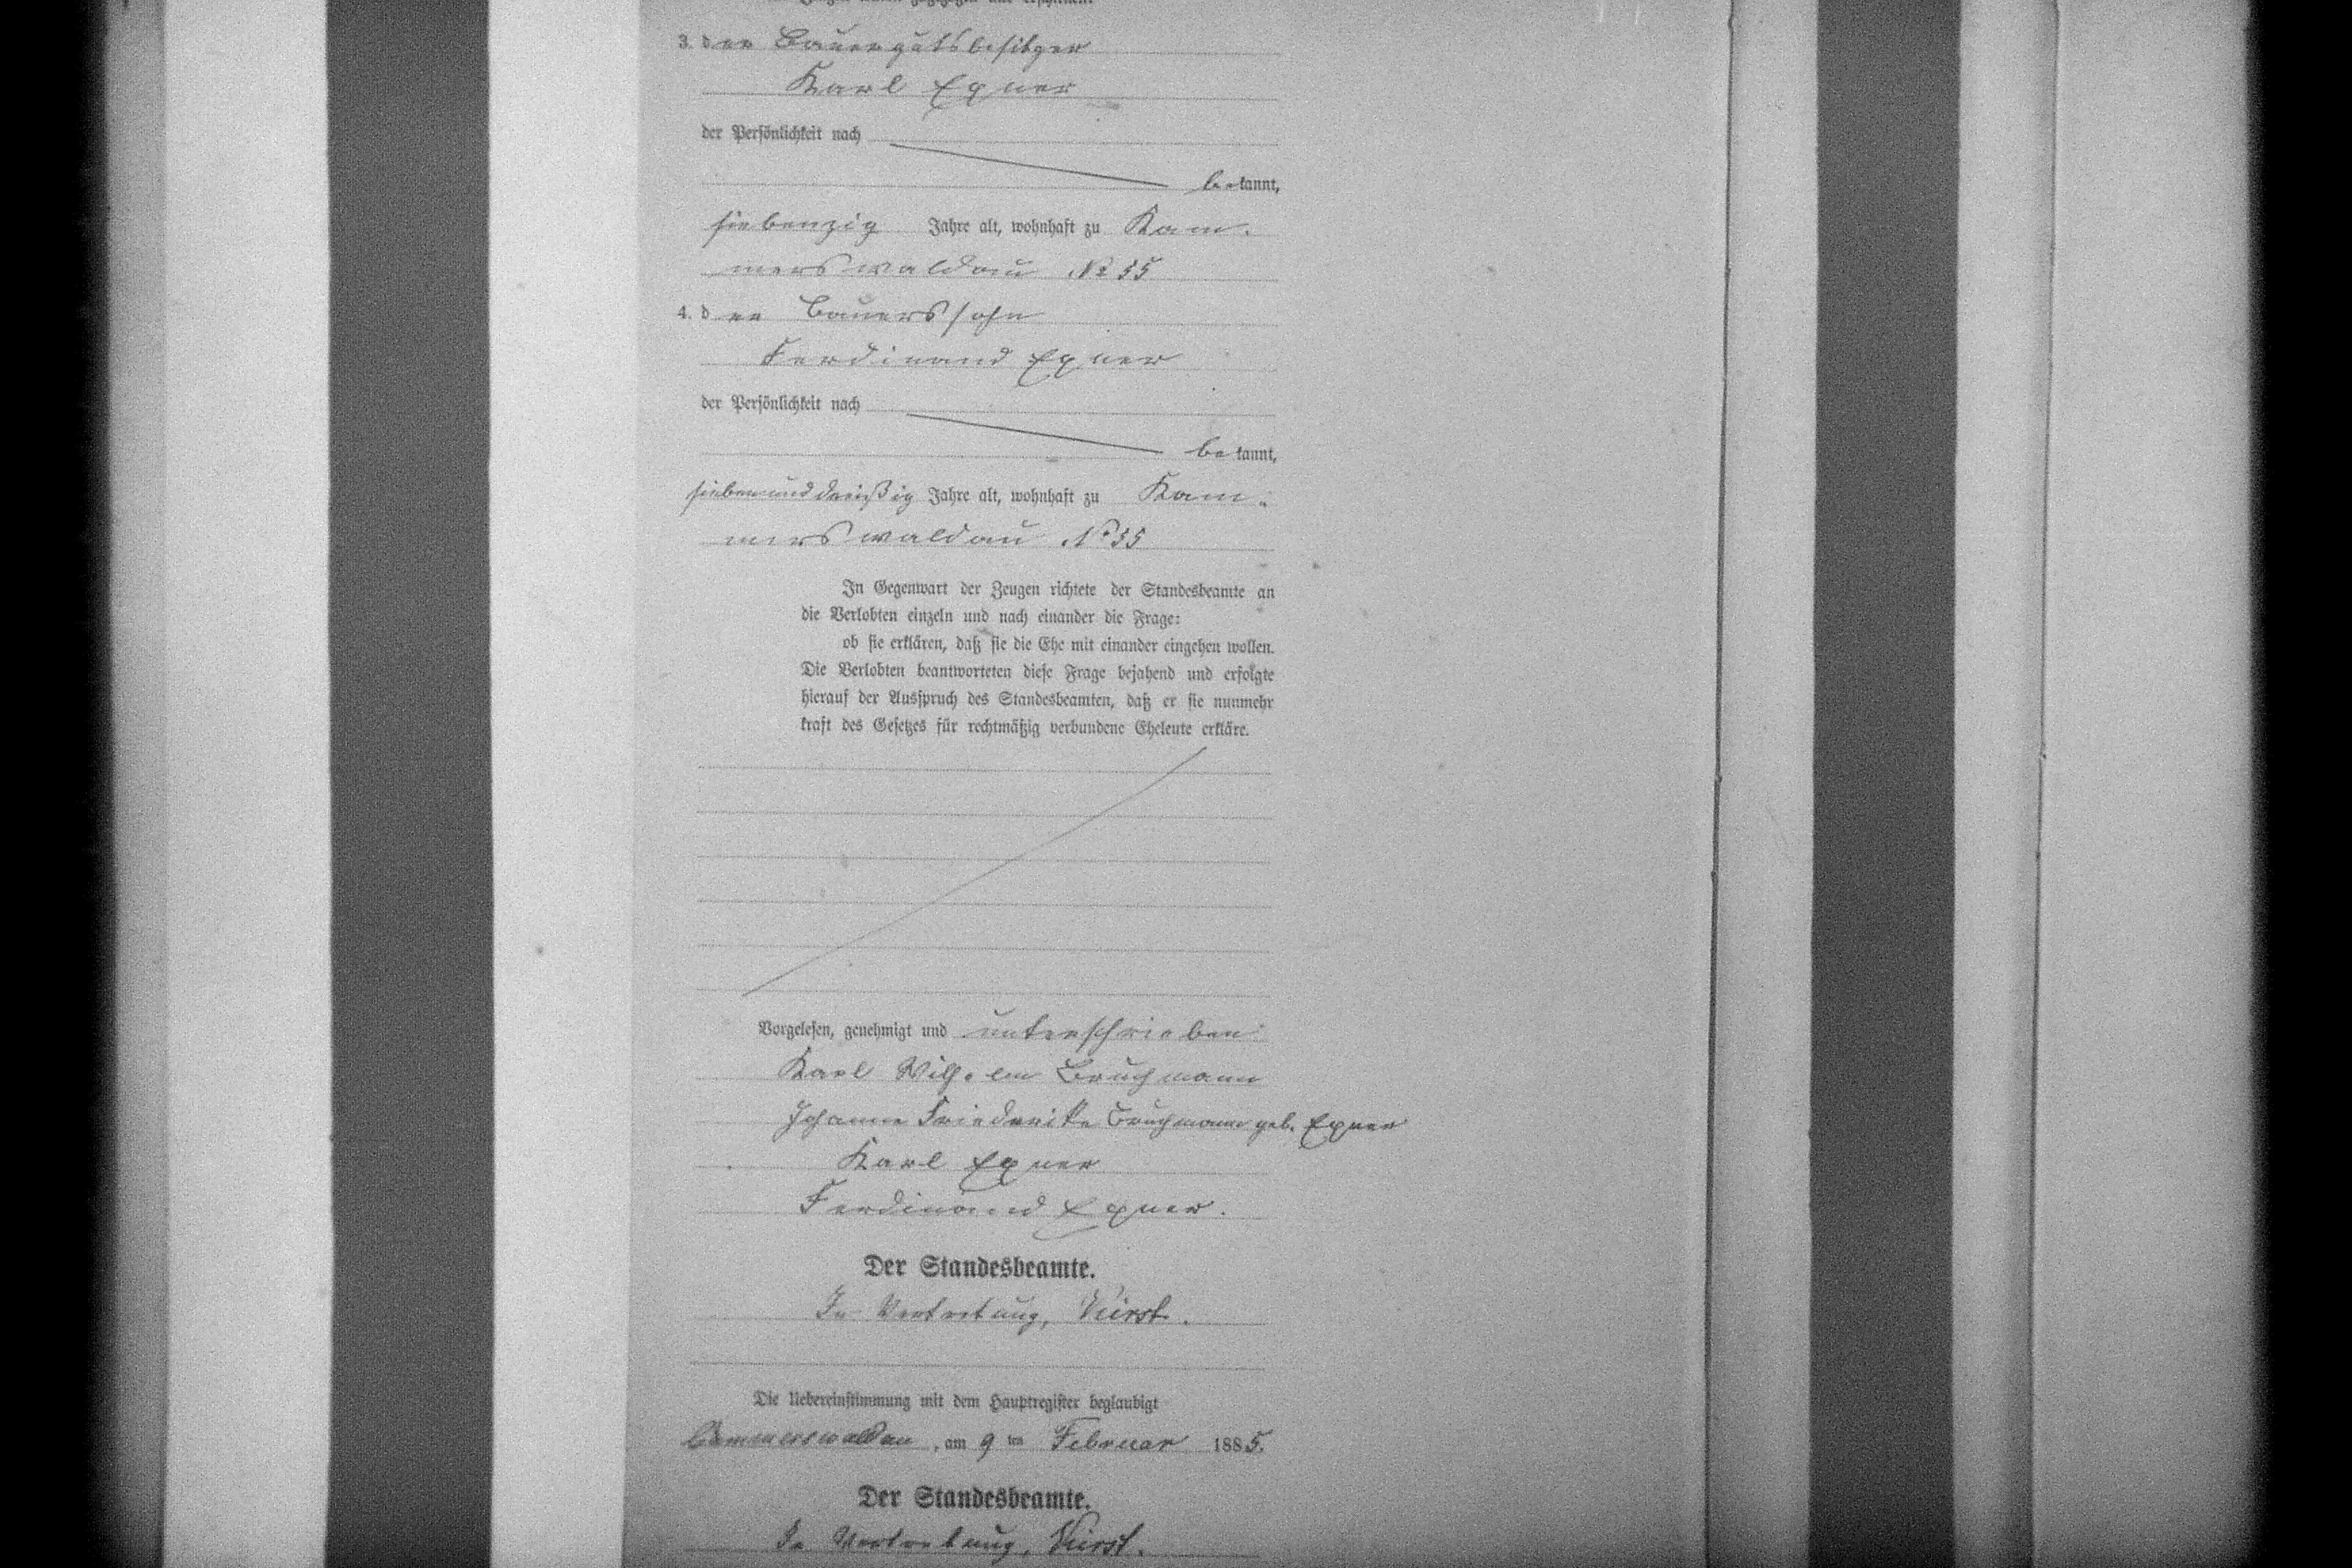 3. der Bauergutsbesitzer
Karl Exner
der Persönlichkeit nach
bekannt,
siebenzig Jahre alt, wohnhaft zu Kam-
merswaldau № 55
4. der Bauerssohn
Ferdinand Exner
der Persönlichkeit nach
bekannt,
siebenunddreißig Jahre alt, wohnhaft zu Kam-
merswaldau No 55
In Gegenwart der Zeugen richtete der Standesbeamte an
die Verlobten einzeln und nach einander die Frage:
ob sie erklären, daß sie die Ehe mit einander eingehen wollen.
Die Verlobten beantworteten diese Frage bejahend und erfolgte
hierauf der Ausspruch des Standesbeamten, daß er sie nunmehr
kraft des Gesetzes für rechtmäßig verbundene Eheleute erkläre.
Vorgelesen, genehmigt und unterschrieben:
Karl Wilhelm Bruchmann
Johanne Friederike Bruchmann geb. Exner
Karl Exner
Ferdinand Exner.
Der Standesbeamte.
In Vertretung,
Die Uebereinstimmung mit dem Hauptregister beglaubigt
Cammerswaldau, am 9 ten Februar 1885.
Der Standesbeamte.
In Vertretung,